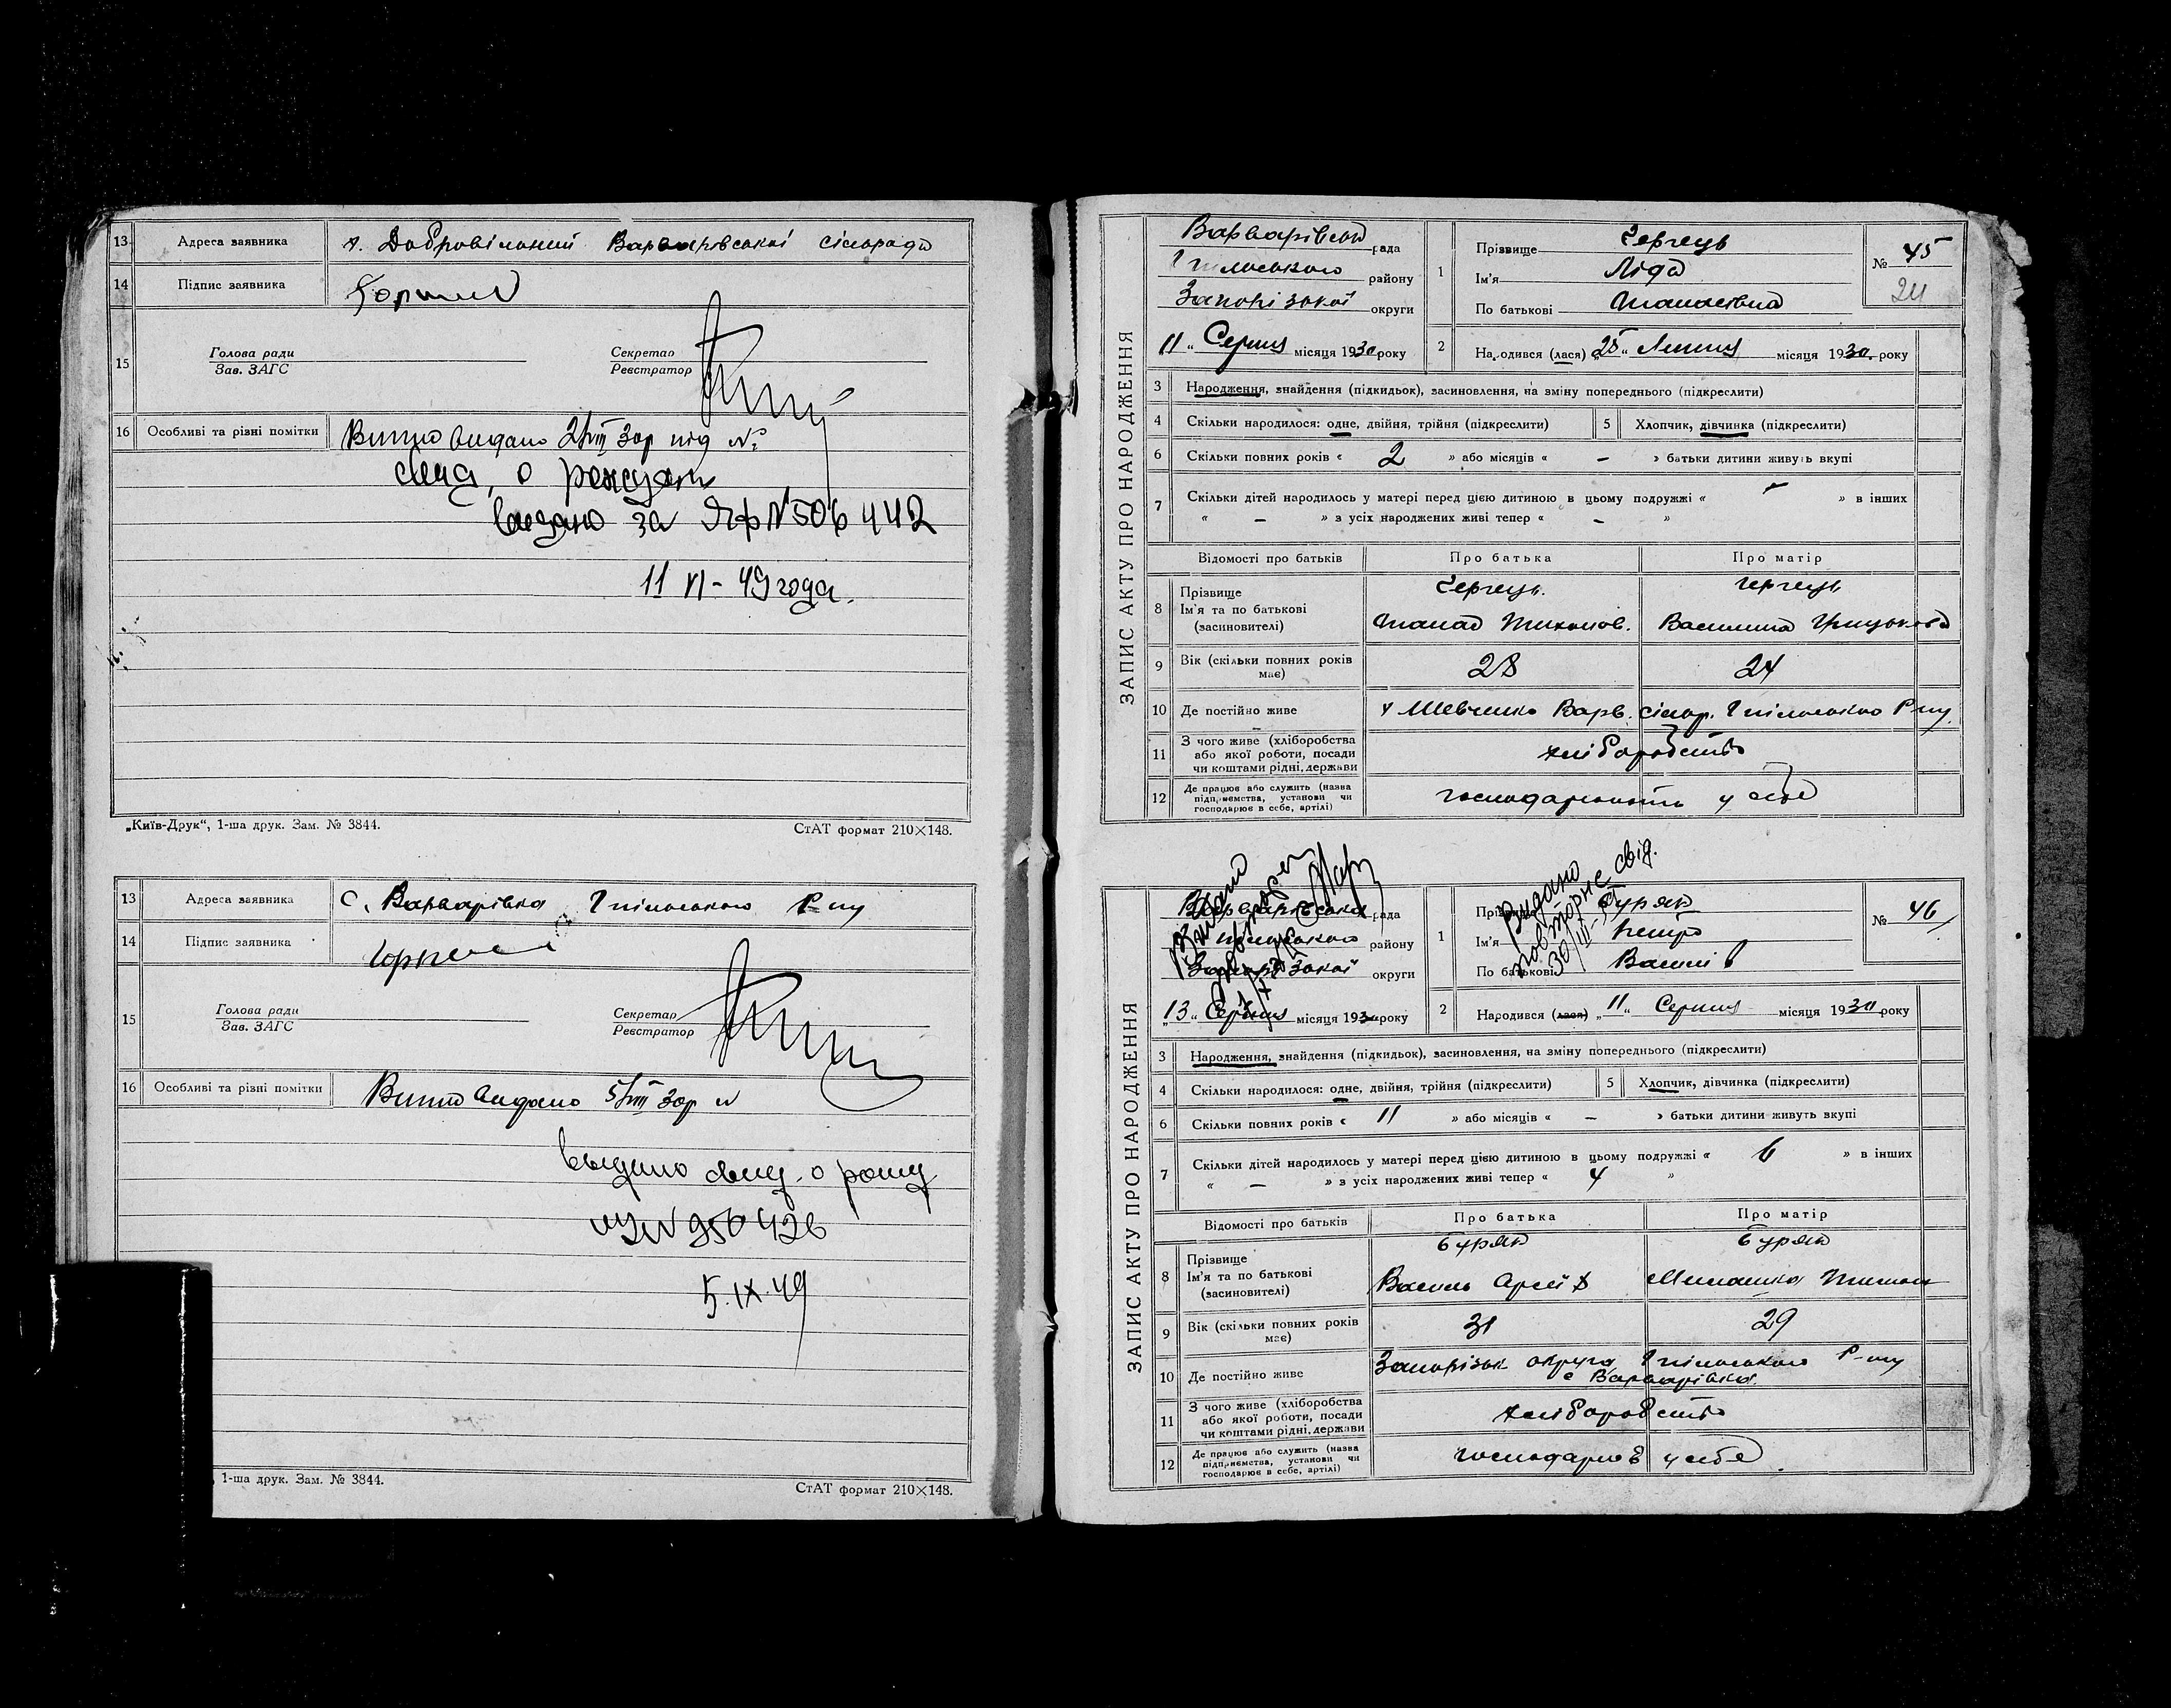 13 Адреса заявника х. Добровільний Варварівської сільради
14 Підпис заявника
15 Голова ради Секретар
Зав. ЗАГС Реєстратор
16 Особливі та різні помітки Витяг видано 2/VIII 30р під №
свид. о рожден
выдано за ЯФ N 506442
11 VI - 49 года.
„Київ-Друк“, 1-ша друк. Зам. № 3844. СтАТ формат 210×148.
13 Адреса заявника С. Варварівка Гпільського Р-ну
14 Підпис заявника
15 Голова ради Секретар
Зав. ЗАГС Реєстратор
16 Особливі та різні помітки Витяг видано 5/VIII 30р
выдано свид. о рожд
N 950426
5.IX.49
1-ша друк. Зам. № 3844. СтАТ формат 210×148.
ЗАПИС АКТУ ПРО НАРОДЖЕННЯ
Варварівська рада
Гпільського району
Запорізької округи
11 „ Серпня місяця 1930 року
1 Прізвище Чернець
Ім'я Ліда
По батькові
№ 45
24
2 Народився (лася) „25“ Липня місяця 1930. року
3 Народження, знайдення (підкидьок), засиновлення, на зміну попереднього (підкреслити)
4 Скільки народилося: одне, двійня, трійня (підкреслити) 5 Хлопчик, дівчинка (підкреслити)
6 Скільки повних років « 2 » або місяців « – » батьки дитини живуть вкупі
7 Скільки дітей народилось у матері перед цією дитиною в цьому подружжі « - » в інших
« – » з усіх народжених живі тепер « – »
Відомості про батьків Про батька Про матір
8 Прізвище Чернець. Чернець
Ім'я та по батькові
(засиновителі) Тихонов. Василина Грицькова
9 Вік (скільки повних років має) 28 24
10 Де постійно живе х Шевченко Варв. сільр. Гпільського Р-ну.
11 З чого живе (хліборобства або якої роботи, посади чи коштами рідні, держави хліборобство
12 Де працює або служить (назва підприємства, установи чи господарює в себе, артілі) господарюють у себе
ЗАПИС АКТУ ПРО НАРОДЖЕННЯ
Варварівська рада
Гпільського району
Запорізької округи
„13“ Серпня місяця 1930 року
Видано
повторне свід.
30/III-
1 Прізвище Буряк
Ім'я Петро
По батькові Василів
№ 46
2 Народився (лася) „11“ Серпня місяця 1930 року
3 Народження, знайдення (підкидьок), засиновлення, на зміну попереднього (підкреслити)
4 Скільки народилося: одне, двійня, трійня (підкреслити) 5 Хлопчик, дівчинка (підкреслити)
6 Скільки повних років « 11 » або місяців « – » батьки дитини живуть вкупі
7 Скільки дітей народилось у матері перед цією дитиною в цьому подружжі « 6 » в інших
« – » з усіх народжених живі тепер « 4 »
Відомості про батьків Про батька Про матір
8 Прізвище Буряк Буряк
Ім'я та по батькові
(засиновителі) Василь
9 Вік (скільки повних років має) 31 29
10 Де постійно живе Запорізьк округа, Гпільського Р-ну
с Варварівка.
11 З чого живе (хліборобства або якої роботи, посади чи коштами рідні, держави хліборобство
12 Де працює або служить (назва підприємства, установи чи господарює в себе, артілі) господарює у себе